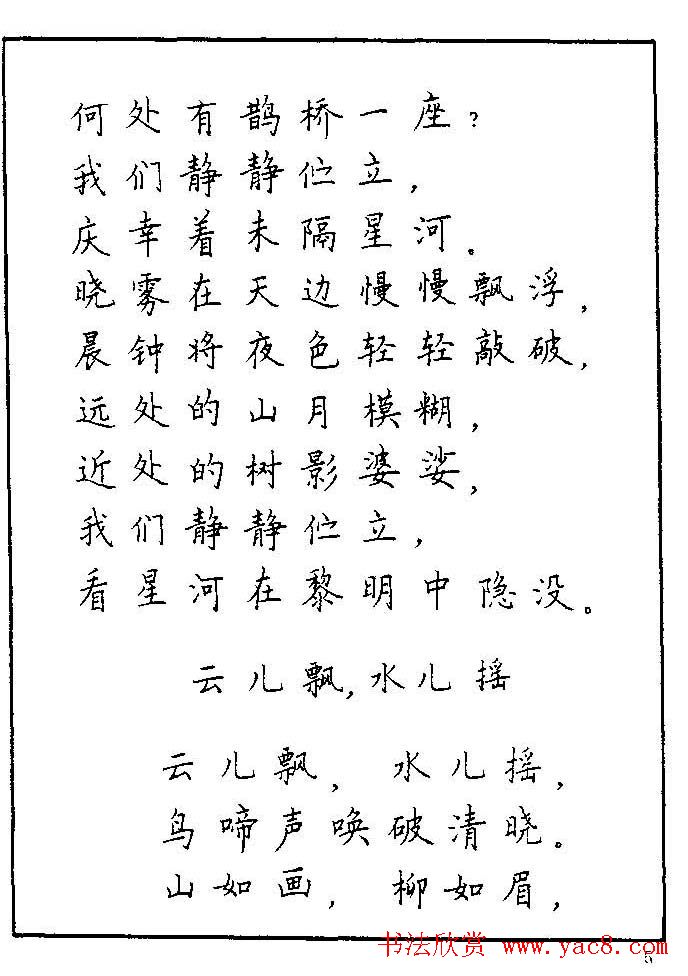 何处有鹊桥一座?
我们静静伫立,
庆幸着未隔星河。
晓雾在天边慢慢飘浮,
晨钟将夜色轻轻敲破,
远处的山月模糊,
近处的树影婆娑,
我们静静伫立,
看星河在黎明中隐没。
云儿飘,水儿摇
云儿飘, 水儿摇,
鸟啼声唤破清晓。
山如画, 柳如眉,
书法欣赏 www.yac8.com
5